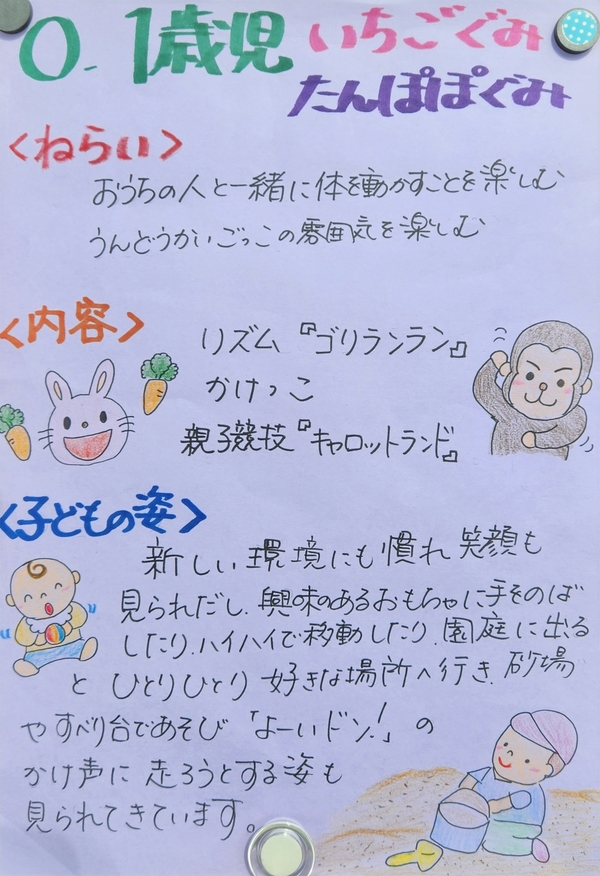 0.1歳児 いちごぐみ
たんぽぽぐみ
<ねらい>
おうちの人と一緒に体を動かすことを楽しむ
うんどうかいごっこの雰囲気を楽しむ
<内容>
リズム『ゴリランラン』
かけっこ
親子競技『キャロットランド』
<子どもの姿>
新しい環境にも慣れ笑顔も
見られだし、興味のあるおもちゃに手をのば
したり、ハイハイで移動したり、園庭に出る
と ひとりひとり 好きな場所へ行き、砂場
やすべり台であそび「よーいドン!」の
かけ声に 走ろうとする姿も
見られてきています。